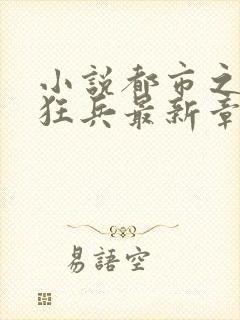 小説都市之
狂兵最新章
易語空